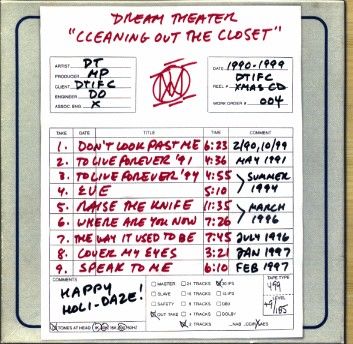 DREAM THEATER
"CLEANING OUT THE CLOSET"
ARTIST DT
PRODUCER MP
CLIENT DTIFC
ENGINEER DO
ASSOC ENG X
DATE 1990-1999
DTIFC
REEL # XMAS CD
WORK ORDER # 004
TAKE DATE TITLE TIME COMMENT
1. DON'T LOOK PAST ME 6:23 2/90, 10/99
2. TO LIVE FOREVER '91 4:36 MAY 1991
3. TO LIVE FOREVER '94 4:55 SUMMER
4. EVE 5:10 1994
5. RAISE THE KNIFE 11:35 MARCH
6. WHERE ARE YOU NOW 7:26 1996
7. THE WAY IT USED TO BE 7:45 JULY 1996
8. COVER MY EYES 3:21 JAN 1997
9. SPEAK TO ME 6:10 FEB 1997
COMMENTS
HAPPY
HOLI-DAZE!
MASTER 24 TRACKS 30 IPS
SLAVE 16 TRACKS 15 IPS
SAFETY 8 TRACKS DBX
OUT TAKE 4 TRACKS DOLBY
2 TRACKS
TAPE TYPE
499
LEVEL
+9/185
TONES AT HEAD